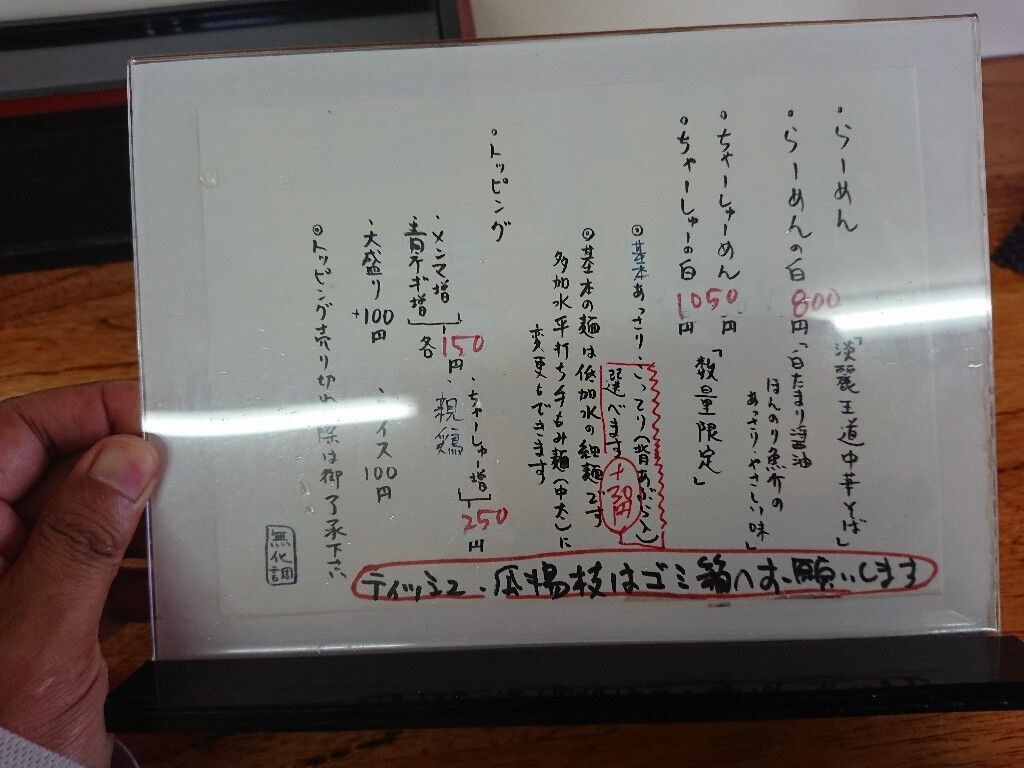 ・らーめん
「淡麗王道中華そば」
・らーめんの白
800円
「白たまり醤油
ほんのり魚介の
あっさりやさしい味」
・ちゃーしゅーめん
・ちゃーしゅーの白
1050円
円
「数量限定」
◎基本あっさり、こってり(背あぶら入)
選べます
+
円
◎基本の麺は低加水の細麺です
多加水平打ち手もみ麺(中太)に
変更もできます
・トッピング
・メンマ増
青ネギ増
各150円
・ちゃーしゅー増
・親鶏
250円
・大盛り+100円
イス100円
◎トッピング売り切れ際は御了承下さい
無化調
ティッシュ、爪楊枝はゴミ箱へお願いします